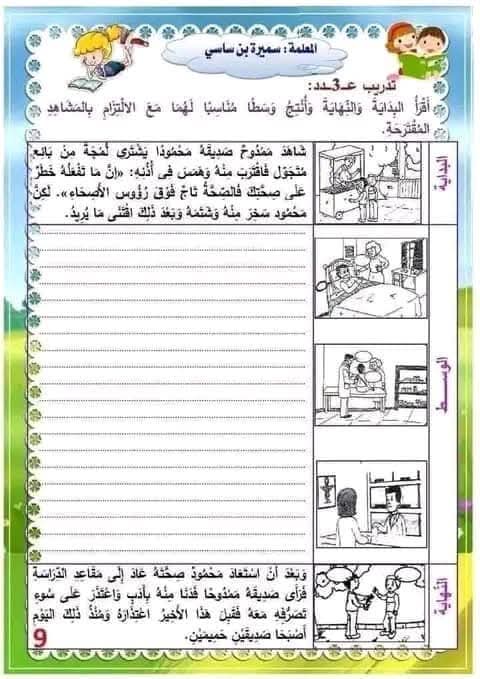 المعلمة : سميرة بن ساسي
تدريب عـ3ـدد:
أَقْرَأُ البِدَايَةَ وَالنِّهَايَةَ وَأُنْتِجُ وَسَطًا مُنَاسِبًا لَهُمَا مَعَ الالْتِزَامِ بِالمَشَاهِدِ
المُقْتَرَحَةِ.
البداية
شَاهَدَ مَمْدُوحٌ صَدِيقَهُ مَحْمُودًا يَشْتَرِي لُمْجَةً مِنْ بَائِعٍ
مُتَجَوِّلٍ فَاقْتَرَبَ مِنْهُ وَهَمَسَ فِي أُذُنِهِ: «إِنَّ مَا تَفْعَلُهُ خَطَرٌ
عَلَى صِحَّتِكَ فَالصِّحَّةُ تَاجٌ فَوْقَ رُؤُوسِ الأَصِحَّاءِ». لَكِنَّ
مَحْمُود سَخِرَ مِنْهُ وَشَتَمَهُ وَبَعْدَ ذَلِكَ اقْتَنَى مَا يُرِيدُ.
الوسط
النهاية
وَبَعْدَ أَنْ اسْتَعَادَ مَحْمُودٌ صِحَّتَهُ عَادَ إِلَى مَقَاعِدِ الدِّرَاسَةِ
فَرَأَى صَدِيقَهُ مَمْدُوحًا فَدَنَا مِنْهُ بِأَدَبٍ وَاعْتَذَرَ عَلَى سُوءِ
تَصَرُّفِهِ مَعَهُ فَقَبِلَ هَذَا الأَخِيرُ اعْتِذَارَهُ وَمُنْذُ ذَلِكَ اليَوْمِ
أَصْبَحَا صَدِيقَيْنِ حَمِيمَيْنِ.
9